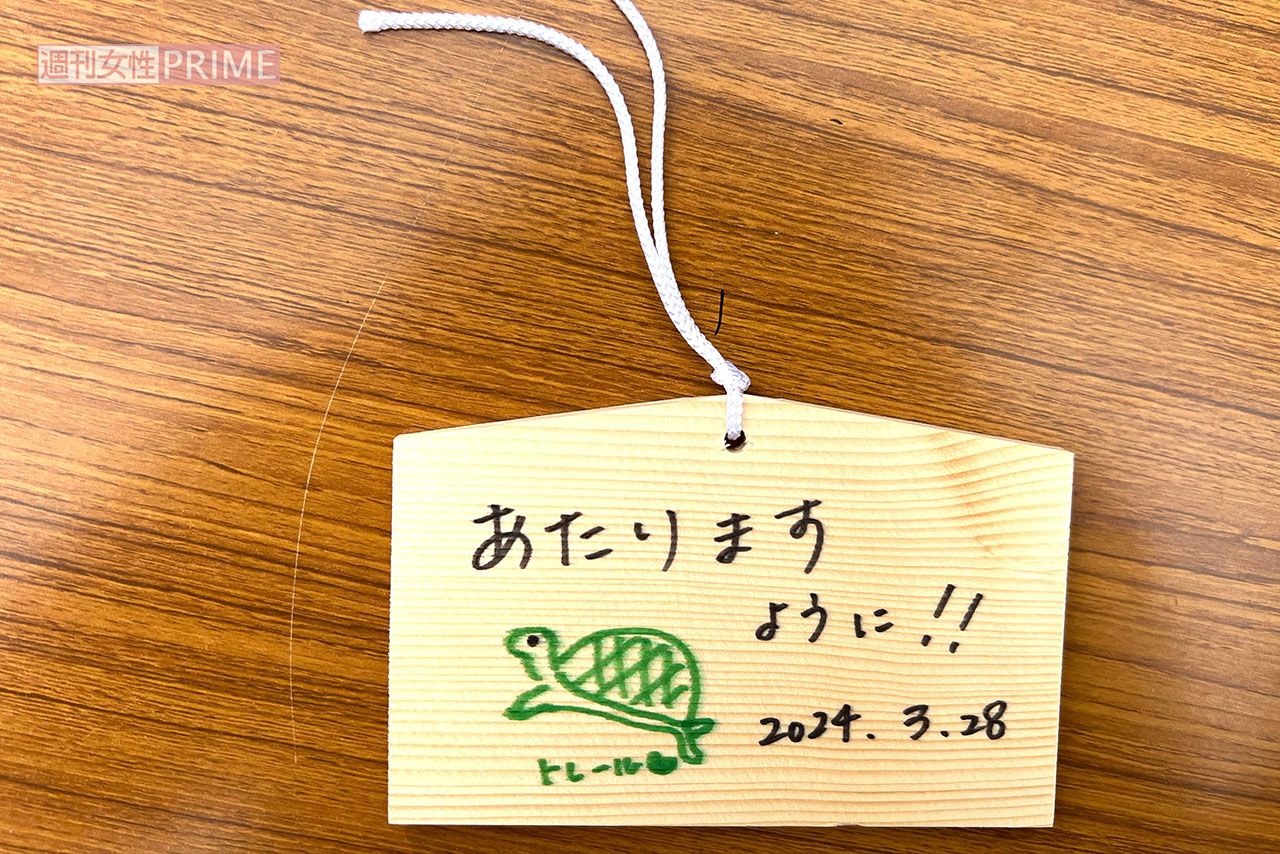 週刊女性PRIME
あたります
ように!!
2024.3.28
トレール